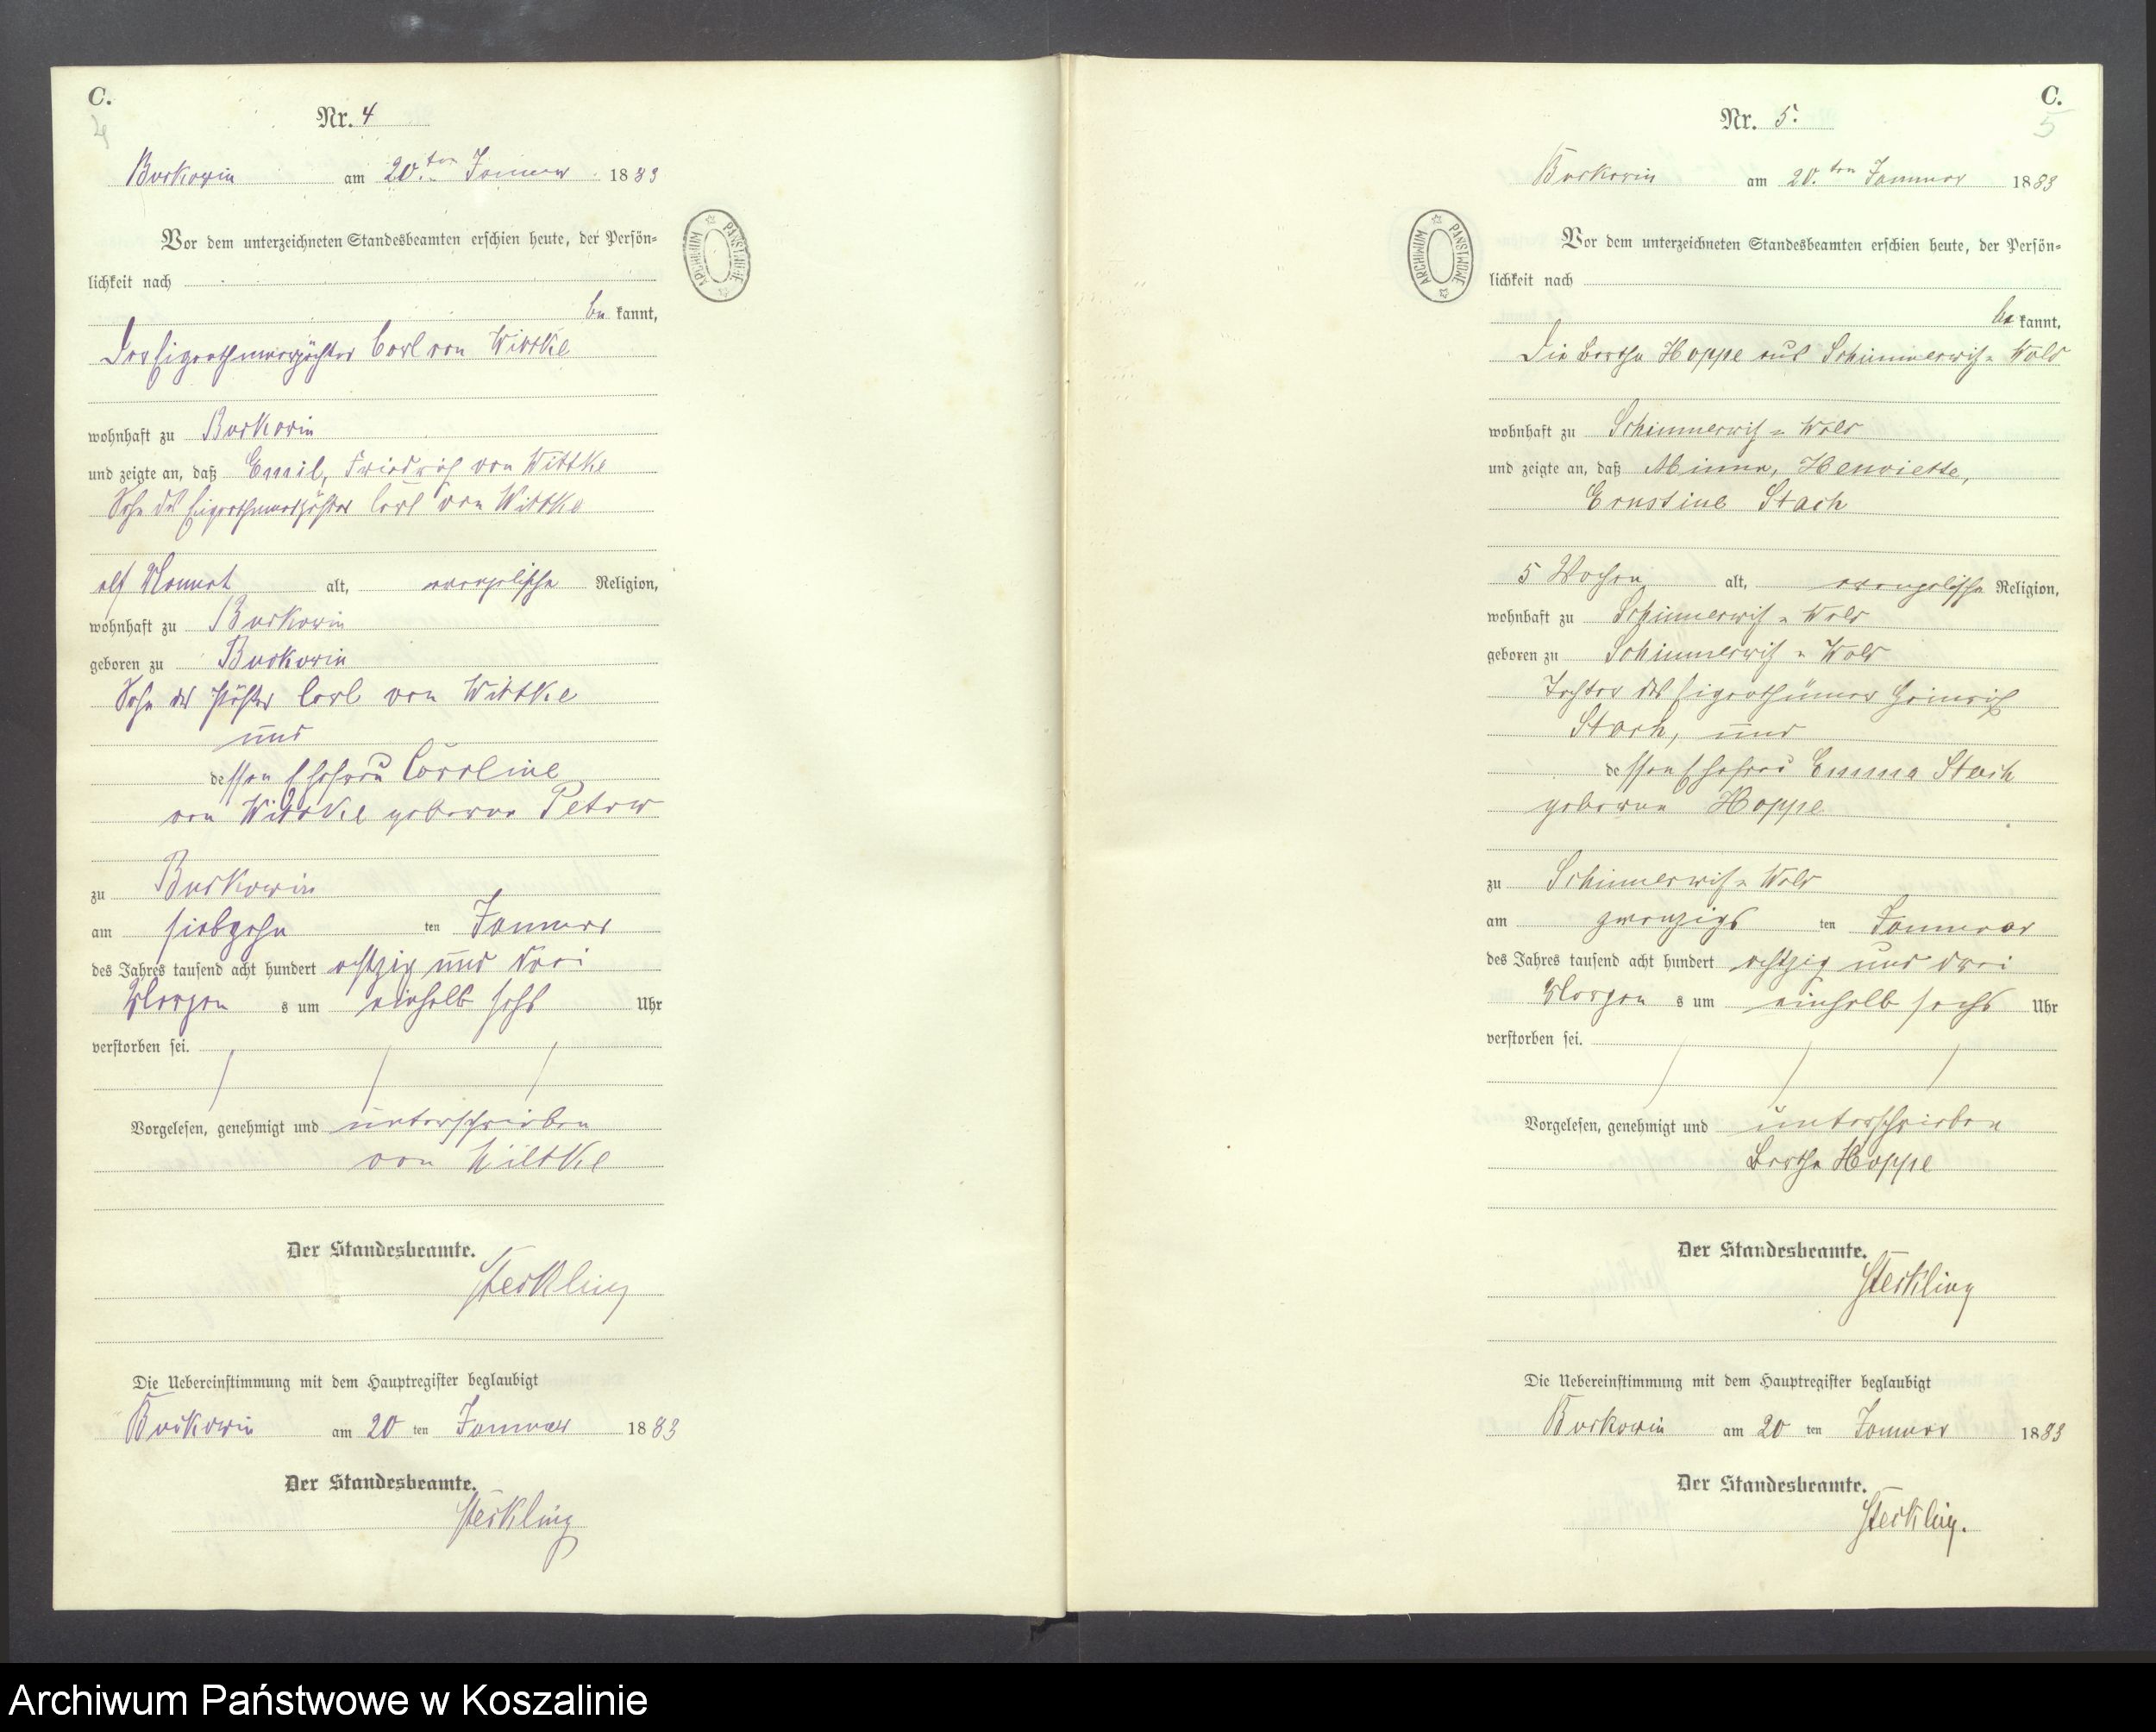 C.
4
Nr. 4
Burkowin am 20.ten Januar 1883
Vor dem unterzeichneten Standesbeamten erschien heute, der Persön-
lichkeit nach
be kannt,
Der Carl von Wittke
wohnhaft zu Burkowin
und zeigte an, daß Emil, Friedrich von Wittke
Sohn des Carl von Wittke
elf Monat alt, evangelische Religion,
wohnhaft zu Burkowin
geboren zu Burkowin
Sohn des Pächter Carl von Wittke
und
dessen Ehefrau Caroline
von Wittke geborne
zu Burkowin
am siebzehn ten Januar
des Jahres tausend acht hundert achtzig und drei
Morgen s um einhalb sechs Uhr
verstorben sei.
Vorgelesen, genehmigt und unterschrieben
von Wittke
Der Standesbeamte.
Steckling
Die Uebereinstimmung mit dem Hauptregister beglaubigt
Burkowin am 20 ten Januar 1883
Der Standesbeamte.
Steckling
ARCHIWUM PAŃSTWOWE
C.
5
Nr. 5.
Burkowin am 20.ten Januar 1883
Vor dem unterzeichneten Standesbeamten erschien heute, der Persön-
lichkeit nach
be kannt,
Die Bertha Hoppe aus Schimmerwitz-Wald
wohnhaft zu Schimmerwitz-Wald
und zeigte an, daß Minna, Henriette,
Ernstine Stach
5 Wochen alt, evangelische Religion,
wohnhaft zu Schimmerwitz-Wald
geboren zu Schimmerwitz-Wald
Tochter des Eigenthümer Heinrich
Stach, und
dessen Ehefrau Emma Stach
geborene Hoppe
zu Schimmerwitz-Wald
am zwanzigs ten Januar
des Jahres tausend acht hundert achtzig und drei
Morgen s um einhalb sechs Uhr
verstorben sei.
Vorgelesen, genehmigt und unterschrieben
Bertha Hoppe
Der Standesbeamte.
Steckling
Die Uebereinstimmung mit dem Hauptregister beglaubigt
Burkowin am 20 ten Januar 1883
Der Standesbeamte.
Steckling.
ARCHIWUM PAŃSTWOWE
Archiwum Państwowe w Koszalinie